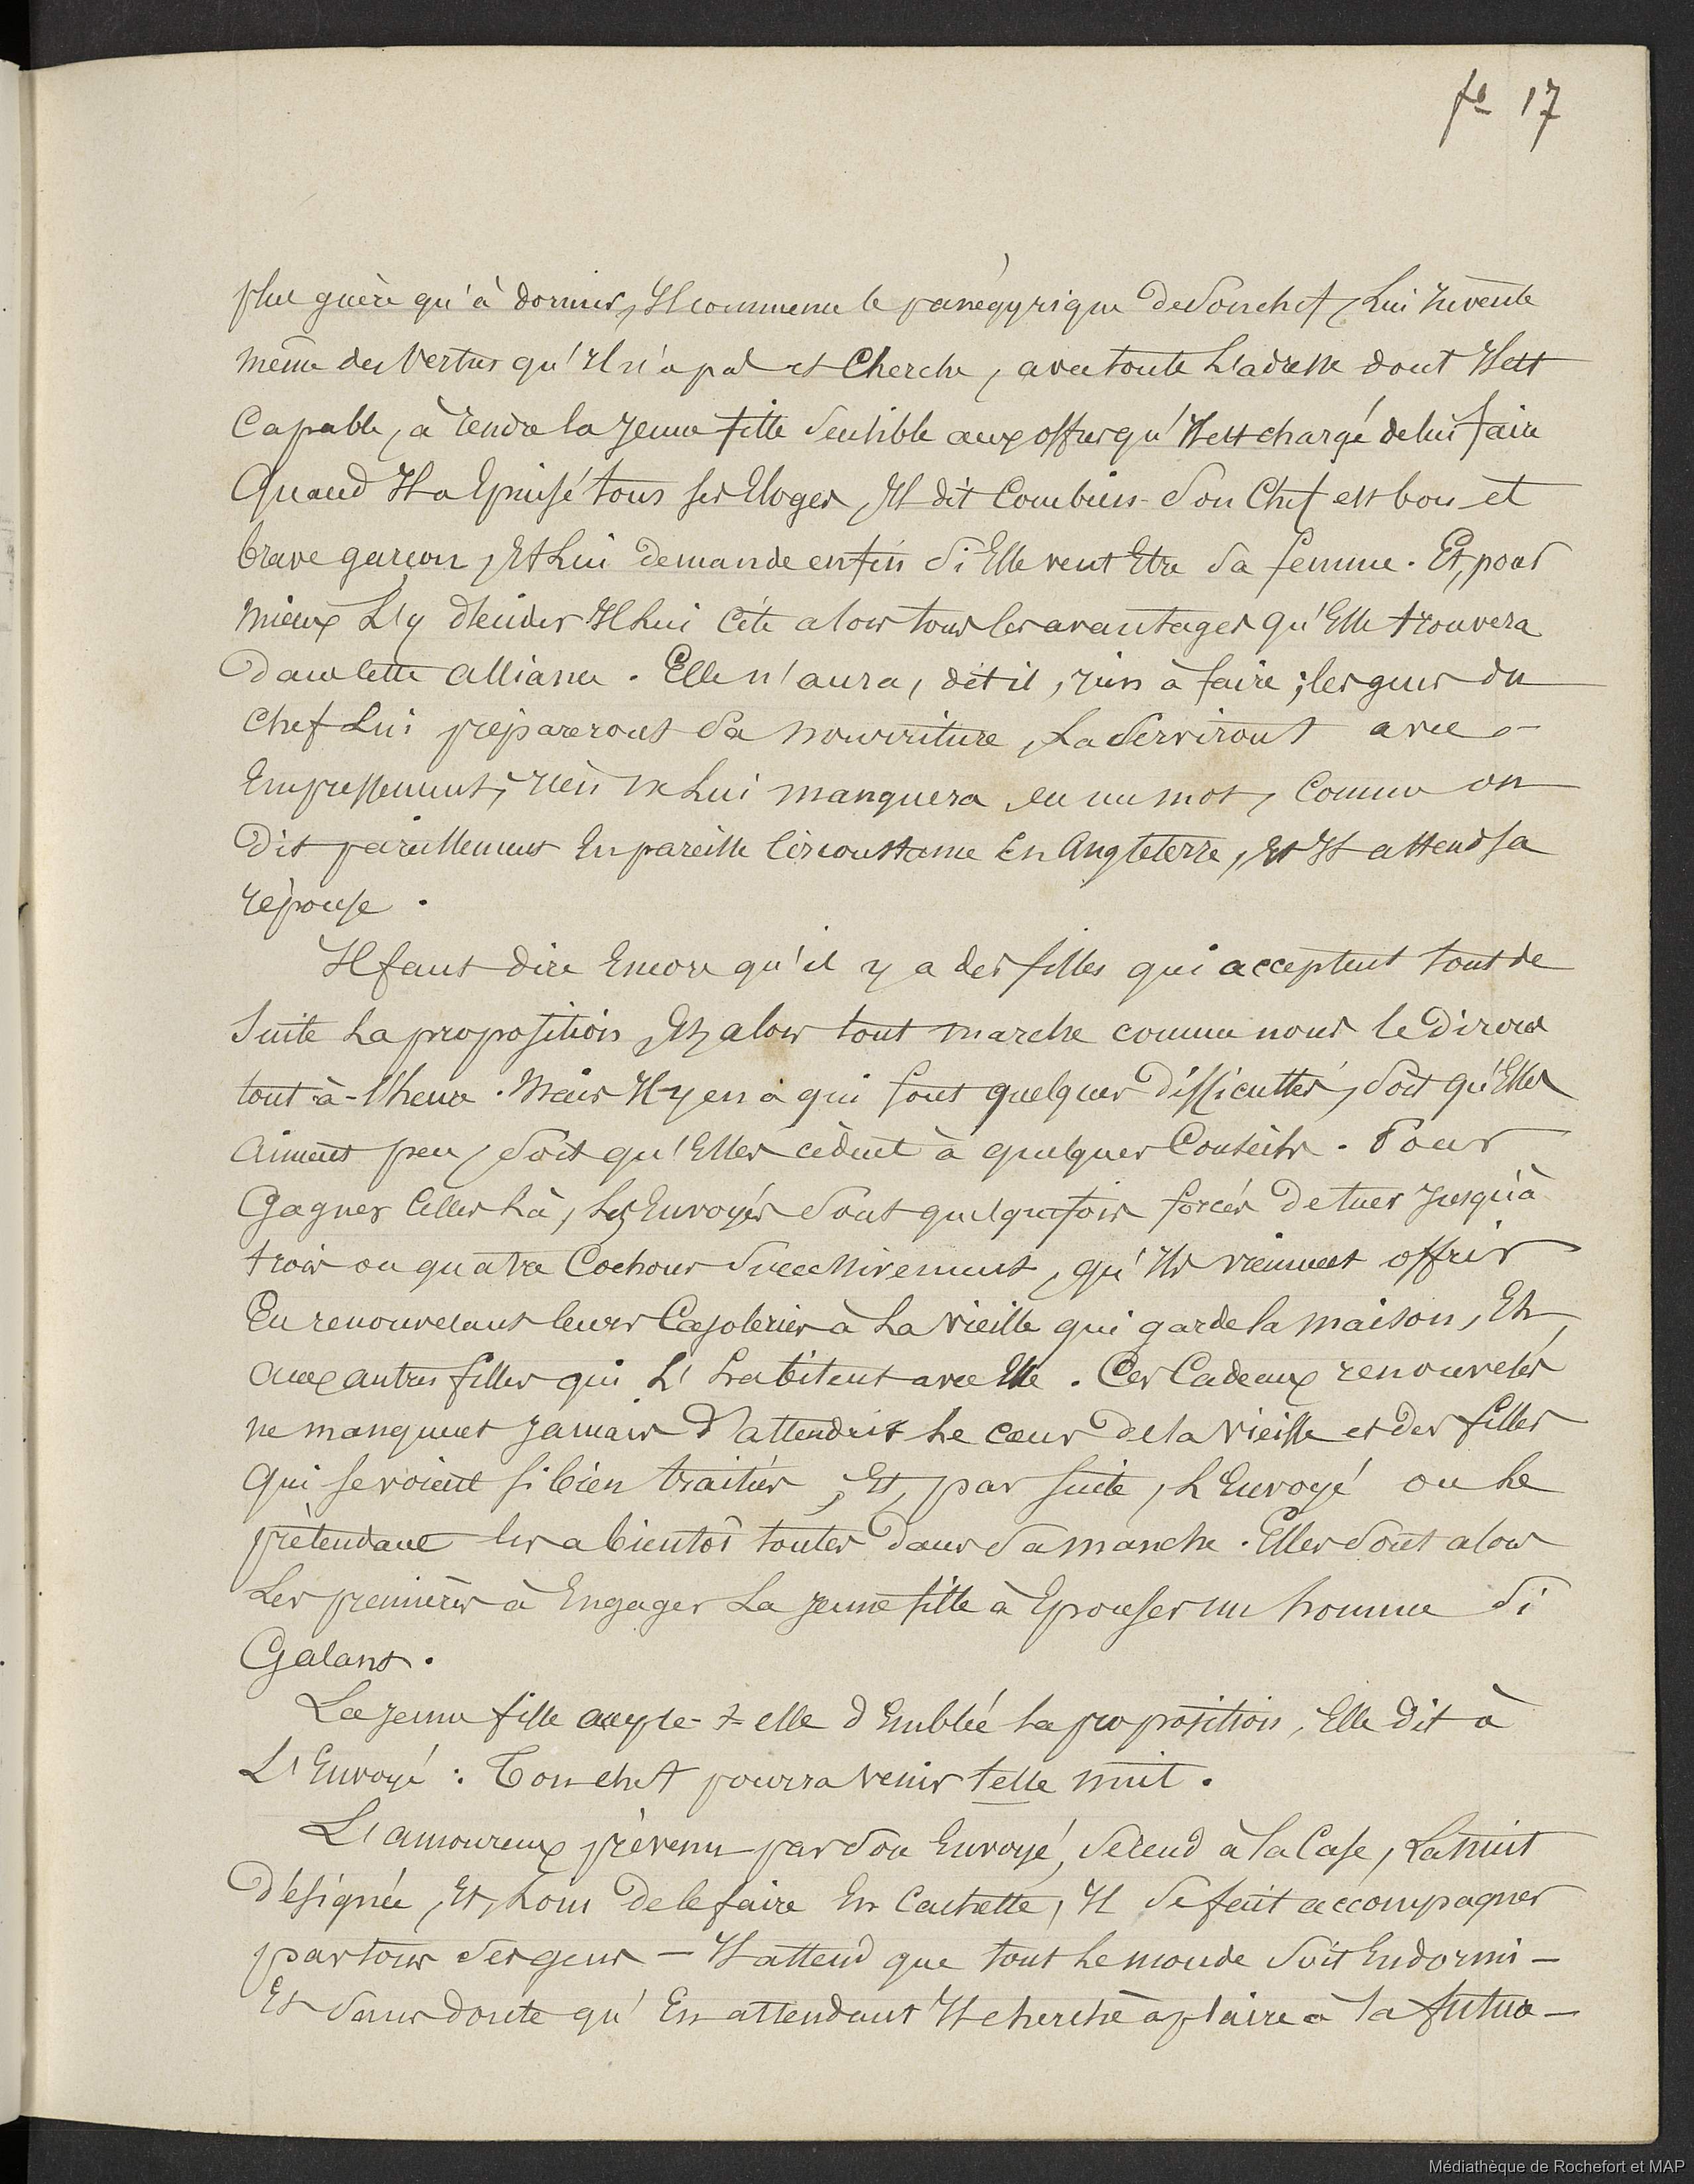 fo 17
plus guère qu'à dormir, Il commence le panégyrique de Son chef, Lui Invente
même des Vertus qu'Il n'a pas et Cherche, avec toute L'adresse dont Il est
Capable, à rendre la Jeune fille Sensible aux offres qu'Il est chargé de lui faire
Quand Il a Epuisé tous ses Eloges, Il dit Combien Son Chef est bon et
brave garçon, Et Lui demande enfin Si Elle veut Etre Sa femme. Et, pour
mieux L'y décider Il Lui Cite alors tous les avantages qu'Elle trouvera
Dans Cette Alliance. Elle n'aura, dit il, rien à faire; les gens du
Chef Lui prépareront Sa nourriture, La Serviront avec
Empressement, rien ne Lui manquera en un mot, Comme on
Dit pareillement En pareille Circonstance En Angleterre, Et Il attend sa
réponse.
Il faut dire Encore qu'il y a des filles qui acceptent tout de
Suite La proposition, Et alors tout marche comme nous le Dirons
tout-à-l'heure. Mais Il y en a qui font quelques Difficultés, Soit qu'Elles
Aiment peu, Soit qu'Elles cèdent à quelques Conseils. Pour
Gagner Celles Là, Les Envoyés Sont quelquefois forcés De tuer Jusqu'à
trois ou quatre Cochons Successivement, qu'Ils viennent offrir
En renouvelant leurs Cajoleries à La Vieille qui garde la maison, Et
aux autres filles qui L'habitent avec Elle. Ces Cadeaux renouvelés
ne manquent Jamais D'attendrir Le cœur De la Vieille et des filles
Qui se voient si bien traitées, Et, par suite, L'Envoyé ou Le
prétendant les a bientôt toutes Dans Sa manche. Elles Sont alors
Les premières à Engager La Jeune fille à Epouser un homme Si
Galant.
La Jeune fille accepte-t-elle d'Emblée La proposition, Elle Dit à
L'Envoyé : Ton chef pourra Venir telle nuit.
L'amoureux prévenu par Son Envoyé, Se rend à la Case, La nuit
Désignée, Et, Loin De le faire En Cachette, Il Se fait accompagner
par tous Ses gens — Il attend que tout Le monde Soit Endormi —
Et Sans doute qu'En attendant Il cherche à plaire à la future —
Médiathèque de Rochefort et MAP